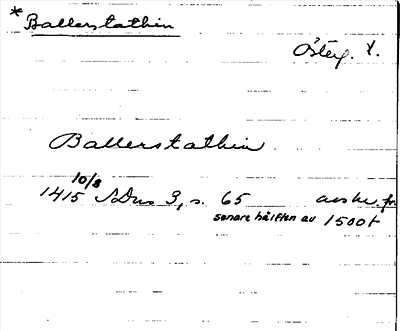 *Ballerstathin
Östg. †.
Ballerstathin
10/8
1415 SDns 3, s. 65 avskr. fr.
senare hälften av 1500 t